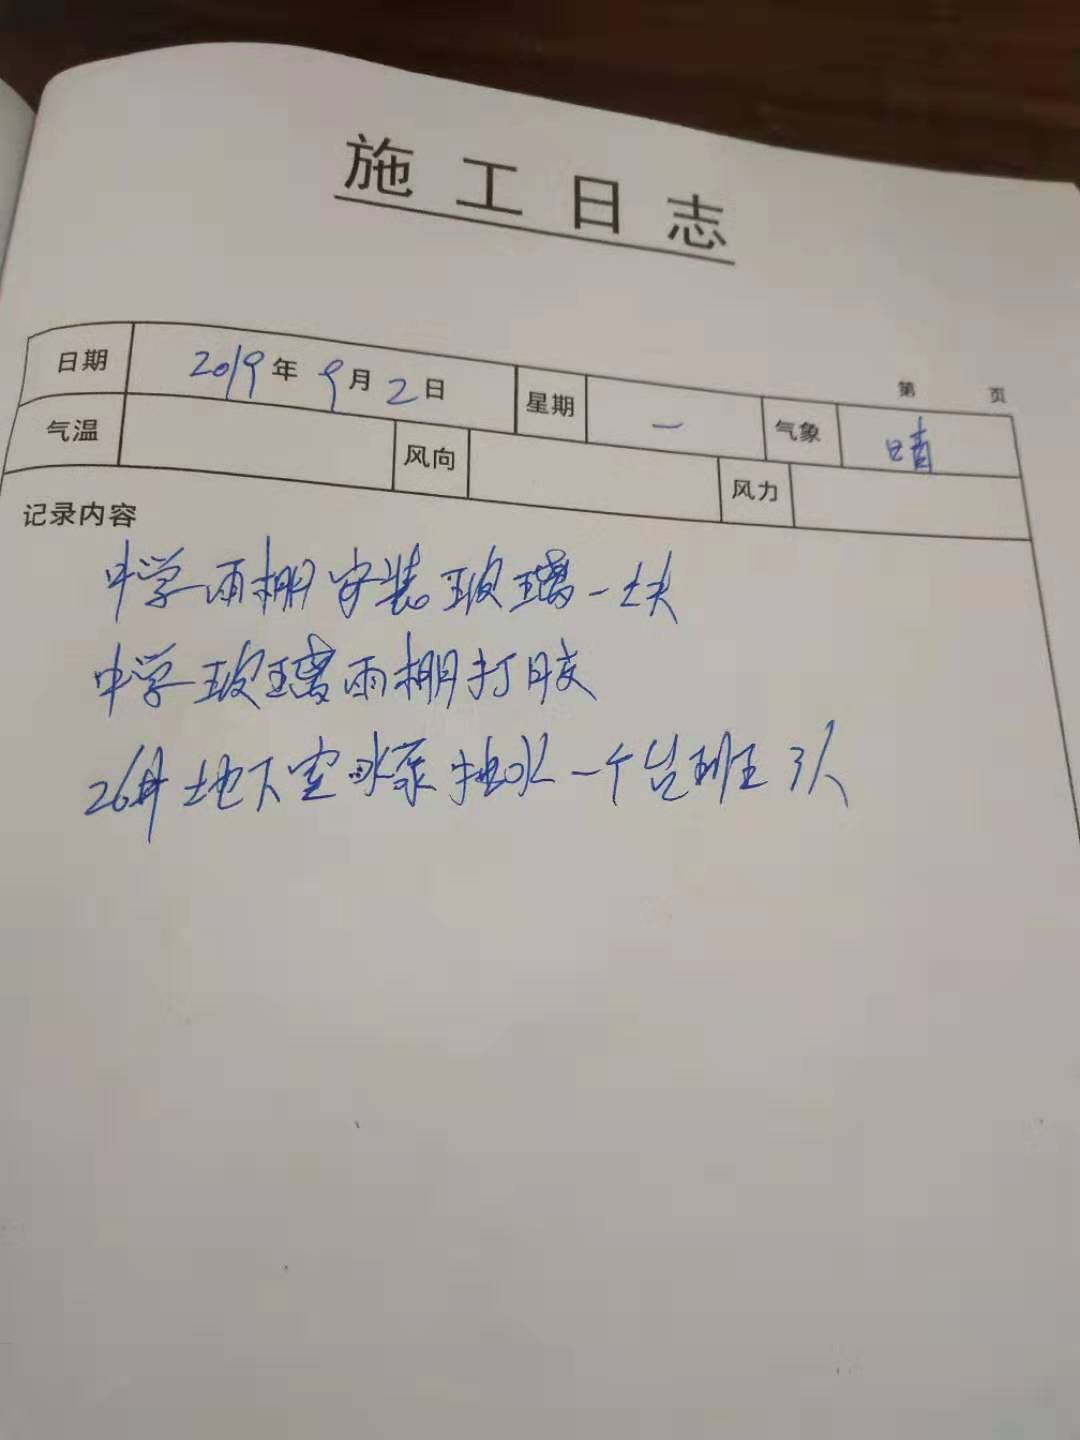 施工日志
第 页
日期 2019年9月2日 星期 一 气象 晴
气温 风向 风力
记录内容
中学雨棚安装玻璃一块
中学玻璃雨棚打胶
26#地下室水泵抽水一个台班3人